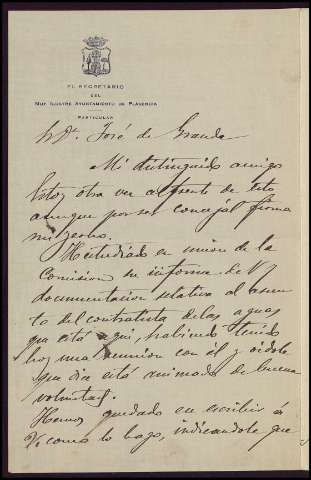 EL SECRETARIO
DEL
MUY ILUSTRE AYUNTAMIENTO DE PLASENCIA
PARTICULAR
Sr. Dn. José de Grande
Mi distinguido amigo
Estoy otra vez al frente de esto
aunque por ser concejal firma
mi
He estudiado en union de la
Comision su informe de V
documentacion relativa al asun
to del contratista de las aguas
que está aqui, habiendo tenido
hoy una reunion con él y oidole
que dice está animado de buena
voluntad.
Hemos quedado en escribir á
V. como lo hago, indicandole que